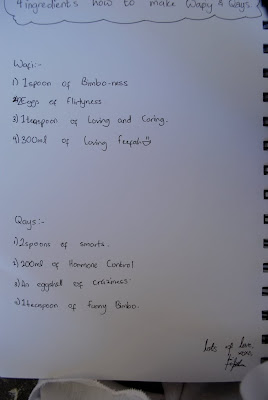 4 ingredients how to make Wapy & Qays
Wafi:-
1) 1 spoon of Bimbo-ness
2) 2 Eggs of Flirtyness
3) 1 teaspoon of Loving and Caring.
4) 300ml of loving
Qays:-
1) 2 spoons of smarts.
2) 200ml of Hormone Control
3) An eggshell of craziness
4) 1 teaspoon of Funny Bimbo.
lots of love,
xoxo,